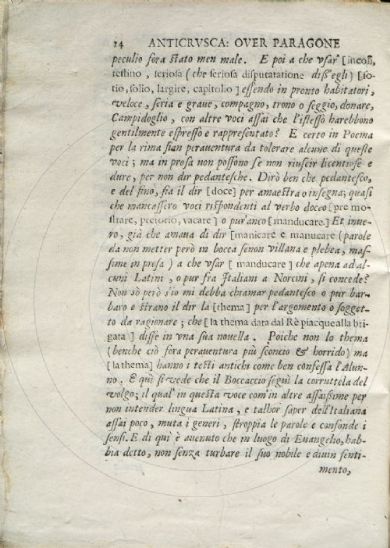 14 ANTICRVSCA: OVER PARAGONE
peculio fora stato men male. E poi a che vsar' [incoli,
restino, seriosa (che seriosa disputatione diss'egli) [so-
tio, solio, largire, capitolo] essendo in pronto habitatori,
veloce, seria e graue, compagno, trono o seggio, donare,
Campidoglio, con altre voci assai che l'istesso harebbono
gentilmente espresso e rappresentato? E certo in Poema
per la rima sian peraventura da tolerare alcune di queste
voci; ma in prosa non possono se non riuscir licentiose e
dure, per non dir pedantesche. Dirò ben che pedantesco,
e del fino, sia il dir [doce] per amaestra o insegna; quasi
che mancassero voci rispondenti al verbo doceo [pre mo-
strare, pretorio, vacare] o pur'anco [manducare.] Et inue-
ro, già che amaua di dir [manicare e manucare (parole
da non metter però in bocca senon villana e plebea, mas-
sime in prosa) a che vsar [manducare] che apena ad al-
cuni Latini, o pur fra Italiani a Norcini, si concede?
Non sò però s'io mi debba chiamar pedantesco o pur bar-
baro e strano il dir la [thema] per l'argomento o sogget-
to da ragionare; che [la thema data dal Rè piacque alla bri-
gata] disse in vna sua nouella. Poiche non lo thema
(benche ciò fora peraventura più sconcio & horrido) ma
[la thema] hanno i testi antichi come ben confessa l'Alun-
no. E quì si vede che il Boccaccio seguì la corruttela del
volgo; il qual' in questa voce com'in altre assaissime per
non intender lingua Latina, e talhor saper dell'Italiana
assai poco, muta i generi, stroppia le parole e confonde i
sensi. E di quì è auenuto che in luogo di Euangelio, hab-
bia detto, non senza turbare il suo nobile e diuin senti-
mento,